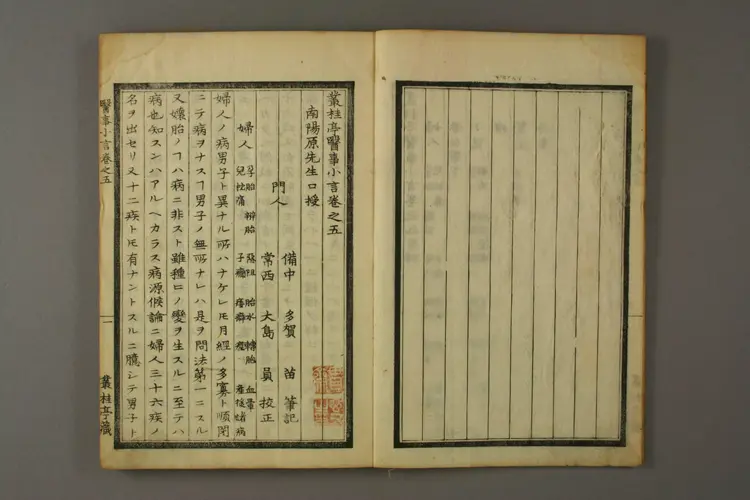 叢桂亭醫事小言卷之五
南陽原先生口授
備中 多賀 苗 筆記
門人
常西 大島 員 校正
婦人 孕胎 辨胎 惡阻 胎水 轉胎 血暈
兒枕痛 子癇
婦人ノ病男子ト異ナル所ハナケレ𪜈月經ノ多寡ト順閉
ニテ病ヲナスヿ男子ノ無所ナレハ是ヲ問法第一ニスル
又孃胎ノヿハ病ニ非スト雖種〻ノ變ヲ生スルニ至テハ
病也知スンハアルヘカラス病源候論ニ婦人三十六疾ノ
名ヲ出セリ又十二疾ト𪜈有ナントスルニ臆シテ男子ト
醫事小言卷之五
一
叢桂亭藏